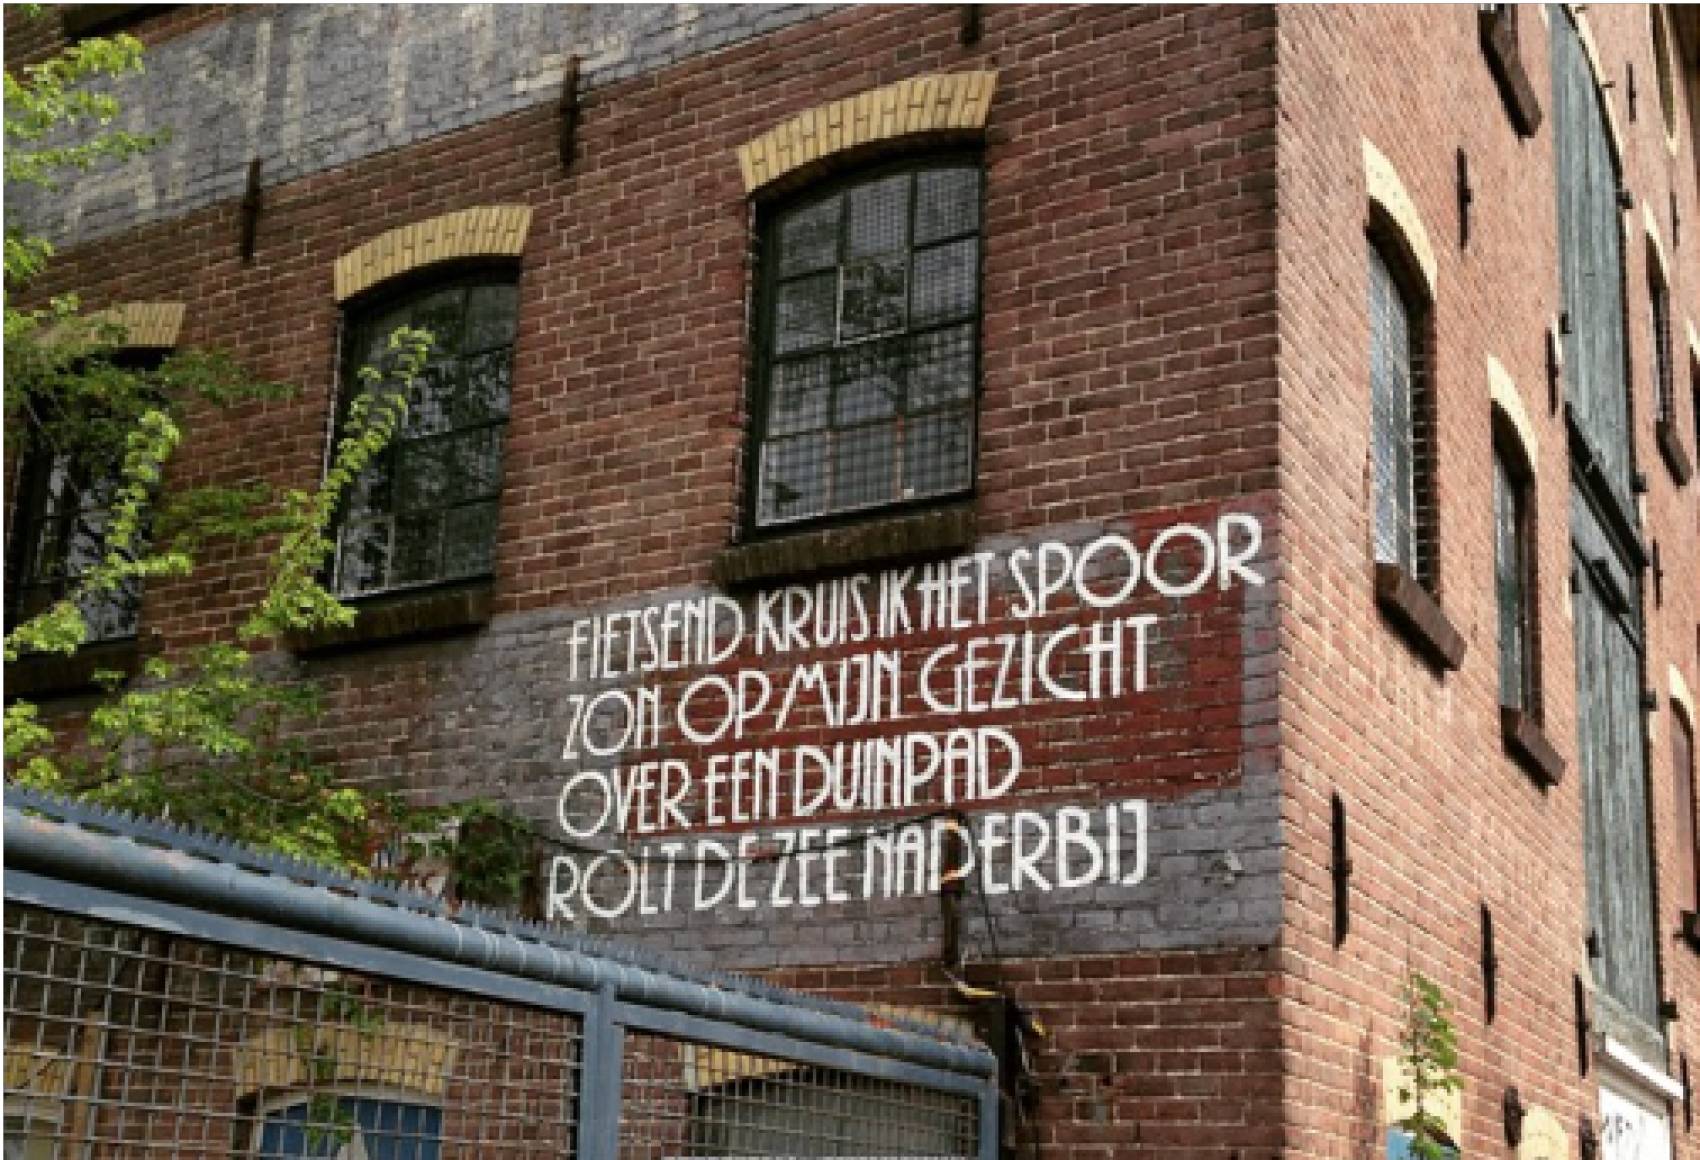 FIETSEND KRUIS IK HET SPOOR
ZON OP MIJN GEZICHT
OVER EEN DUINPAD
ROLT DE ZEE NADERBIJ